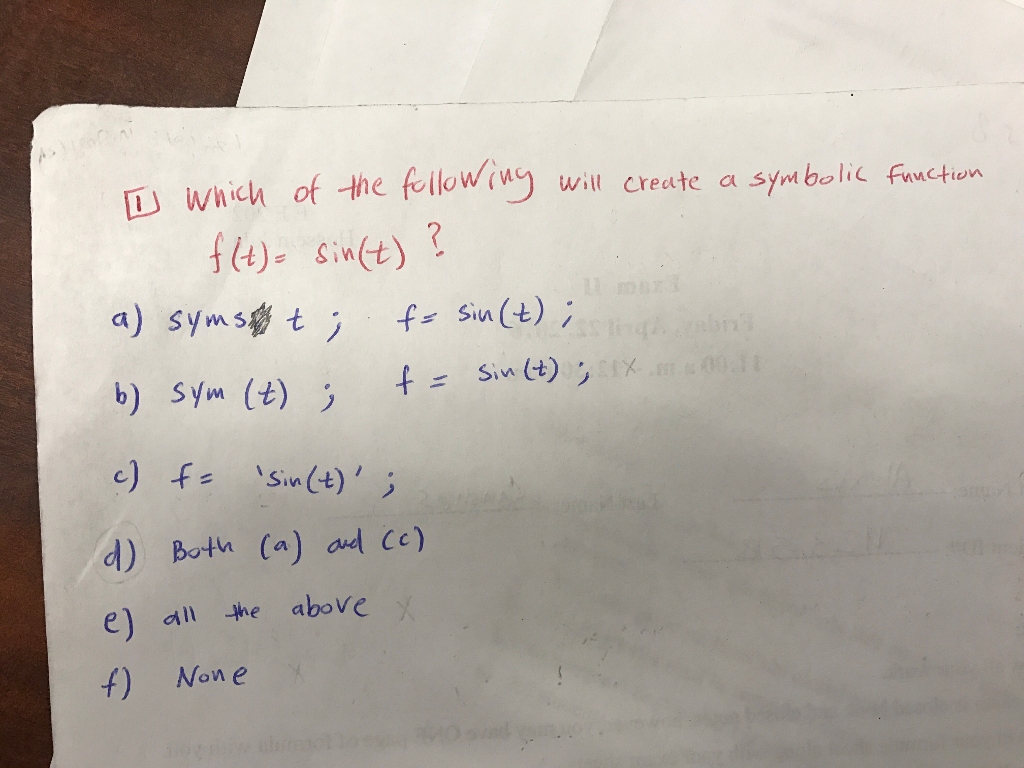 1 Which of the following will create a symbolic function
f(t)= sin(t) ?
a) syms t ; f= sin(t) ;
b) sym (t) ; f = sin(t) ;
c) f= 'sin(t)' ;
d) Both (a) and (c)
e) all the above X
f) None X